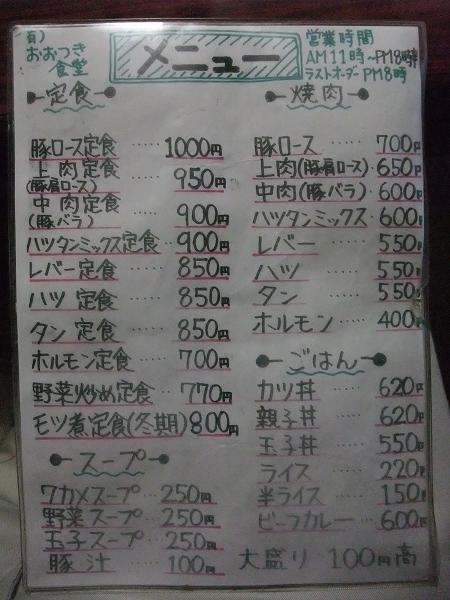 有)
おおつき
食堂
メニュー
営業時間
AM11時~PM8時半
ラストオーダーPM8時
定食
豚ロース定食 ····· 1000円
上肉定食
(豚肩ロース) ····· 950円
中肉定食
(豚バラ) ····· 900円
ハツタンミックス定食 ··· 900円
レバー定食 ····· 850円
ハツ定食 ····· 850円
タン定食 ····· 850円
ホルモン定食 ··· 700円
野菜炒め定食 ··· 770円
モツ煮定食(冬期) 800円
スープ
ワカメスープ ··· 250円
野菜スープ ··· 250円
玉子スープ ··· 250円
豚汁 ····· 100円
焼肉
豚ロース ····· 700円
上肉(豚肩ロース)· 650円
中肉(豚バラ) ·· 600円
ハツタンミックス · 600円
レバー ····· 550円
ハツ ····· 550円
タン ····· 550円
ホルモン ···· 400円
ごはん
カツ丼 ···· 620円
親子丼 ···· 620円
玉子丼 ···· 550円
ライス ···· 220円
半ライス ··· 150円
ビーフカレー ·· 600円
大盛り 100円高